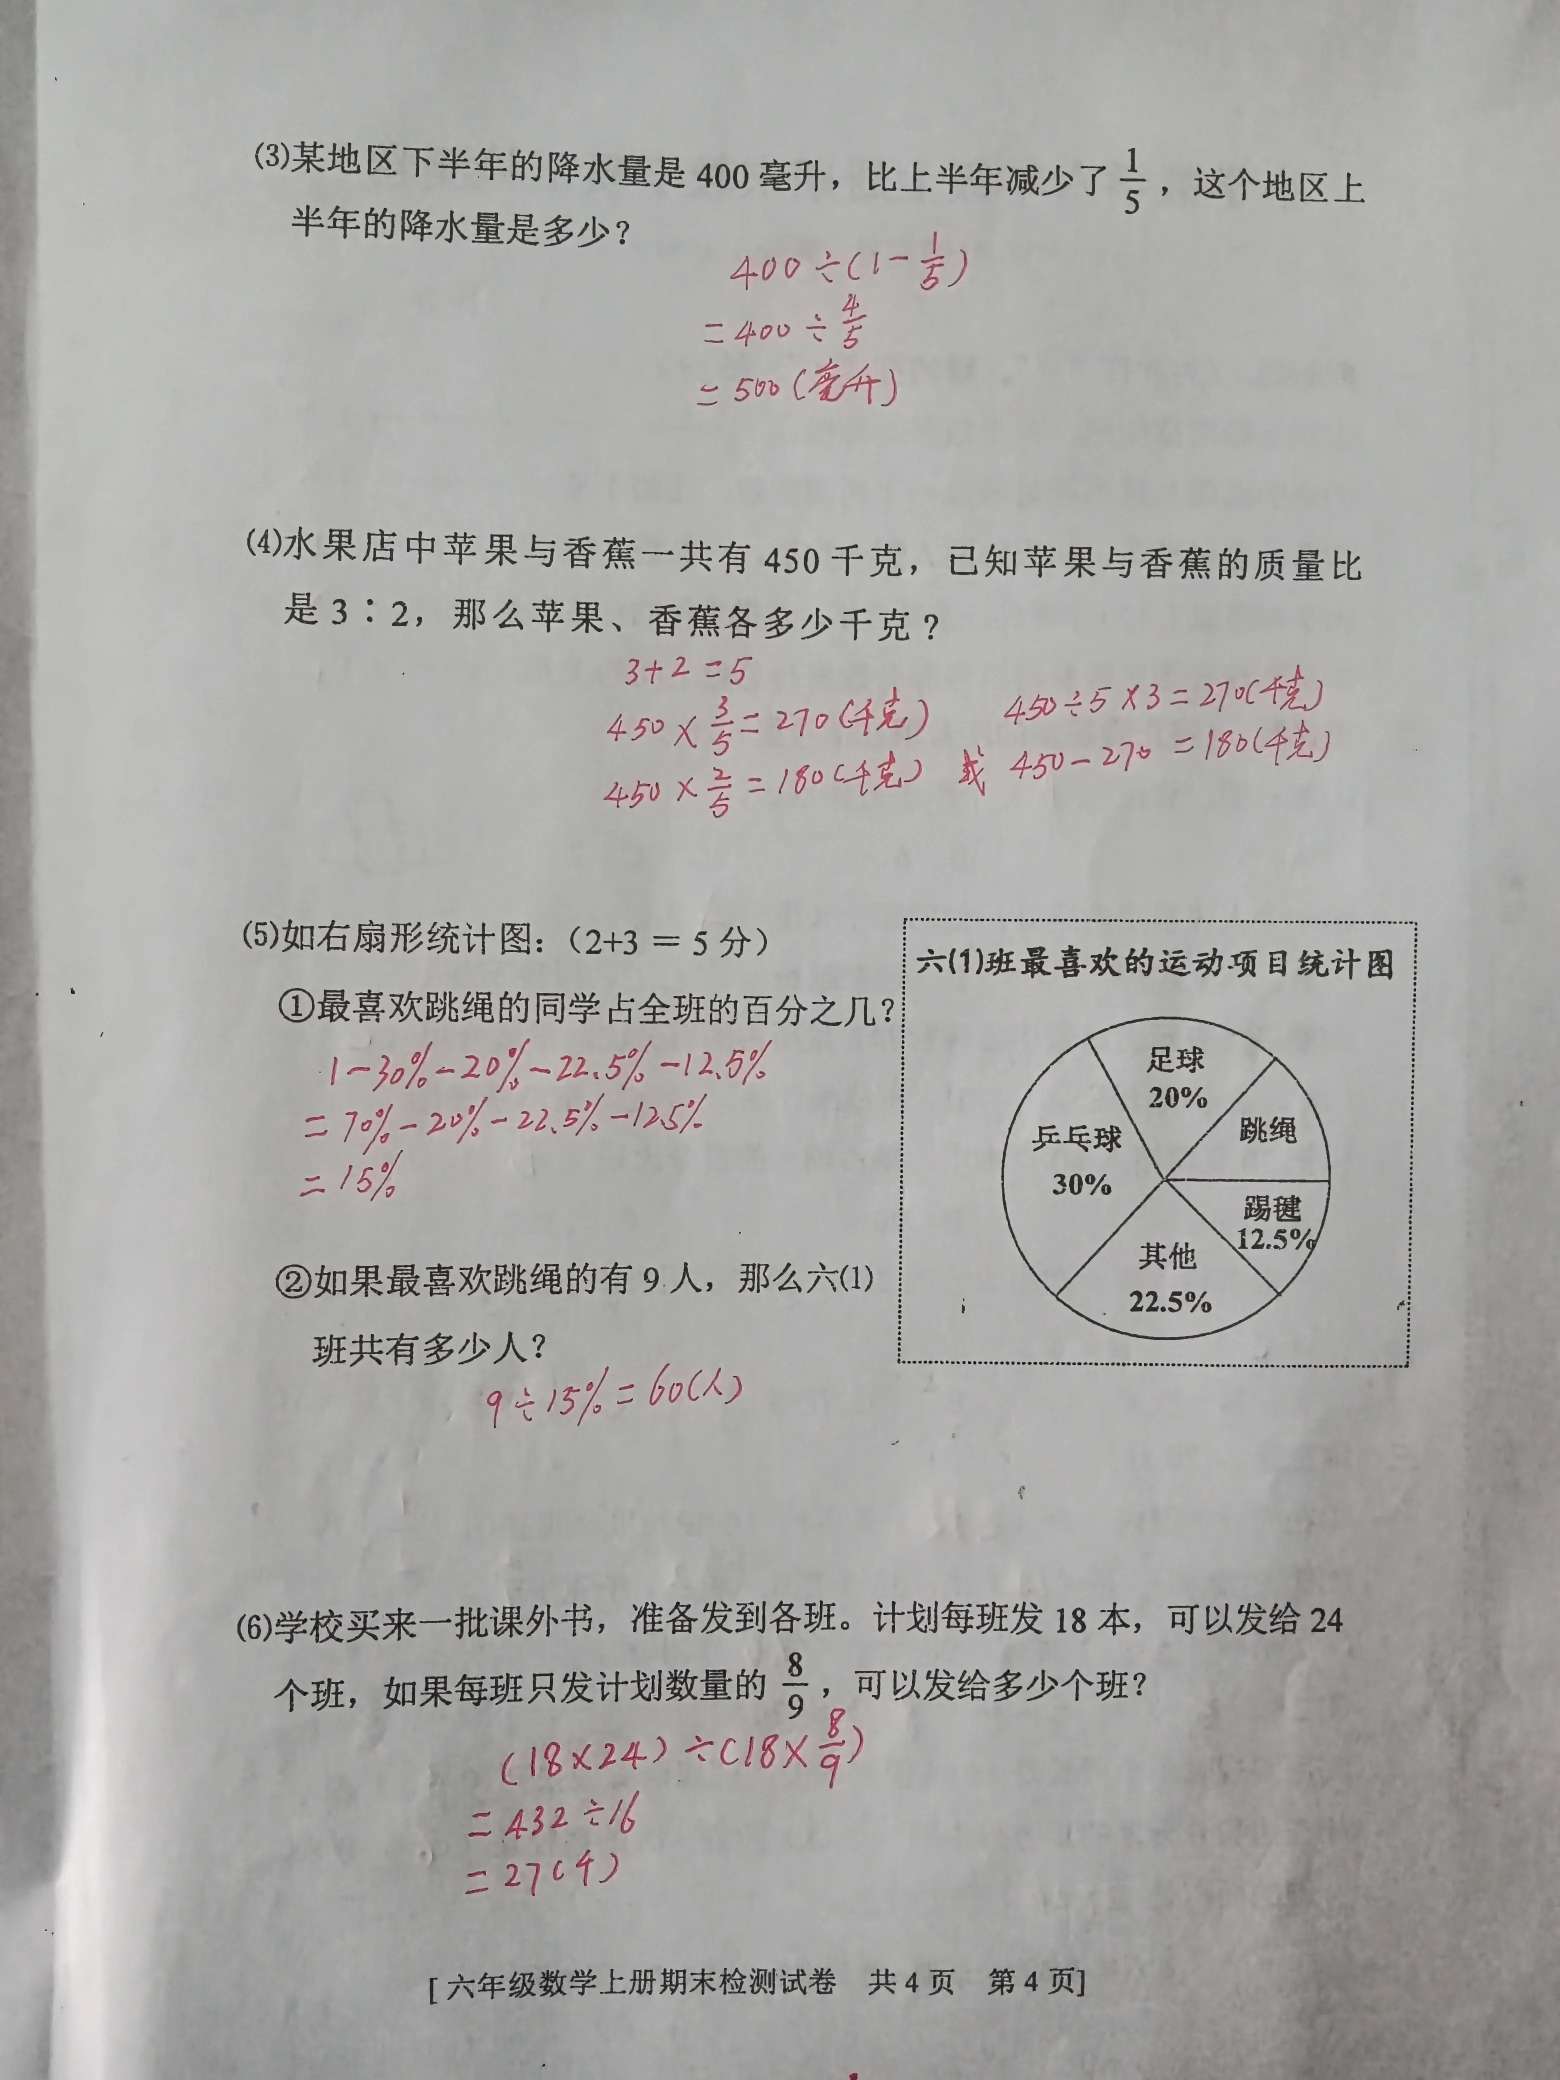 (3)某地区下半年的降水量是 400 毫升，比上半年减少了 1/5 ，这个地区上
半年的降水量是多少？
400÷(1-1/5)
=400÷4/5
=500(毫升)
(4)水果店中苹果与香蕉一共有 450 千克，已知苹果与香蕉的质量比
是 3∶2，那么苹果、香蕉各多少千克？
3+2=5
450×3/5=270(千克)
450×2/5=180(千克)
或
450÷5×3=270(千克)
450-270=180(千克)
(5)如右扇形统计图：（2+3 = 5 分）
①最喜欢跳绳的同学占全班的百分之几？
1-30%-20%-22.5%-12.5%
=70%-20%-22.5%-12.5%
=15%
②如果最喜欢跳绳的有 9 人，那么六(1)
班共有多少人？
9÷15%=60(人)
六(1)班最喜欢的运动项目统计图
足球
20%
跳绳
乒乓球
30%
踢毽
12.5%
其他
22.5%
(6)学校买来一批课外书，准备发到各班。计划每班发 18 本，可以发给 24
个班，如果每班只发计划数量的 8/9 ，可以发给多少个班？
(18×24)÷(18×8/9)
=432÷16
=27(个)
[ 六年级数学上册期末检测试卷 共 4 页 第 4 页]